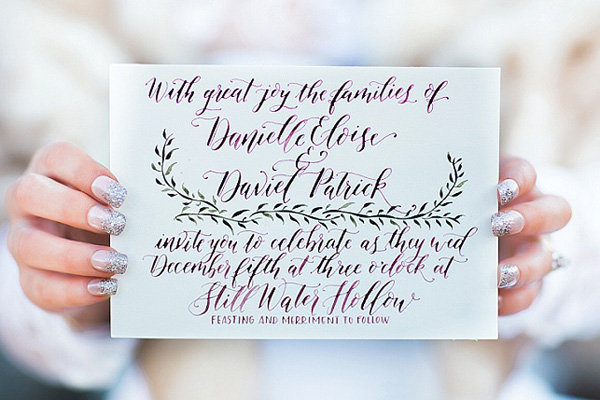 With great joy the families of
Danielle Eloise
&
David Patrick
invite you to celebrate as they wed
December fifth at three o'clock at
Still Water Hollow
FEASTING AND MERRIMENT TO FOLLOW